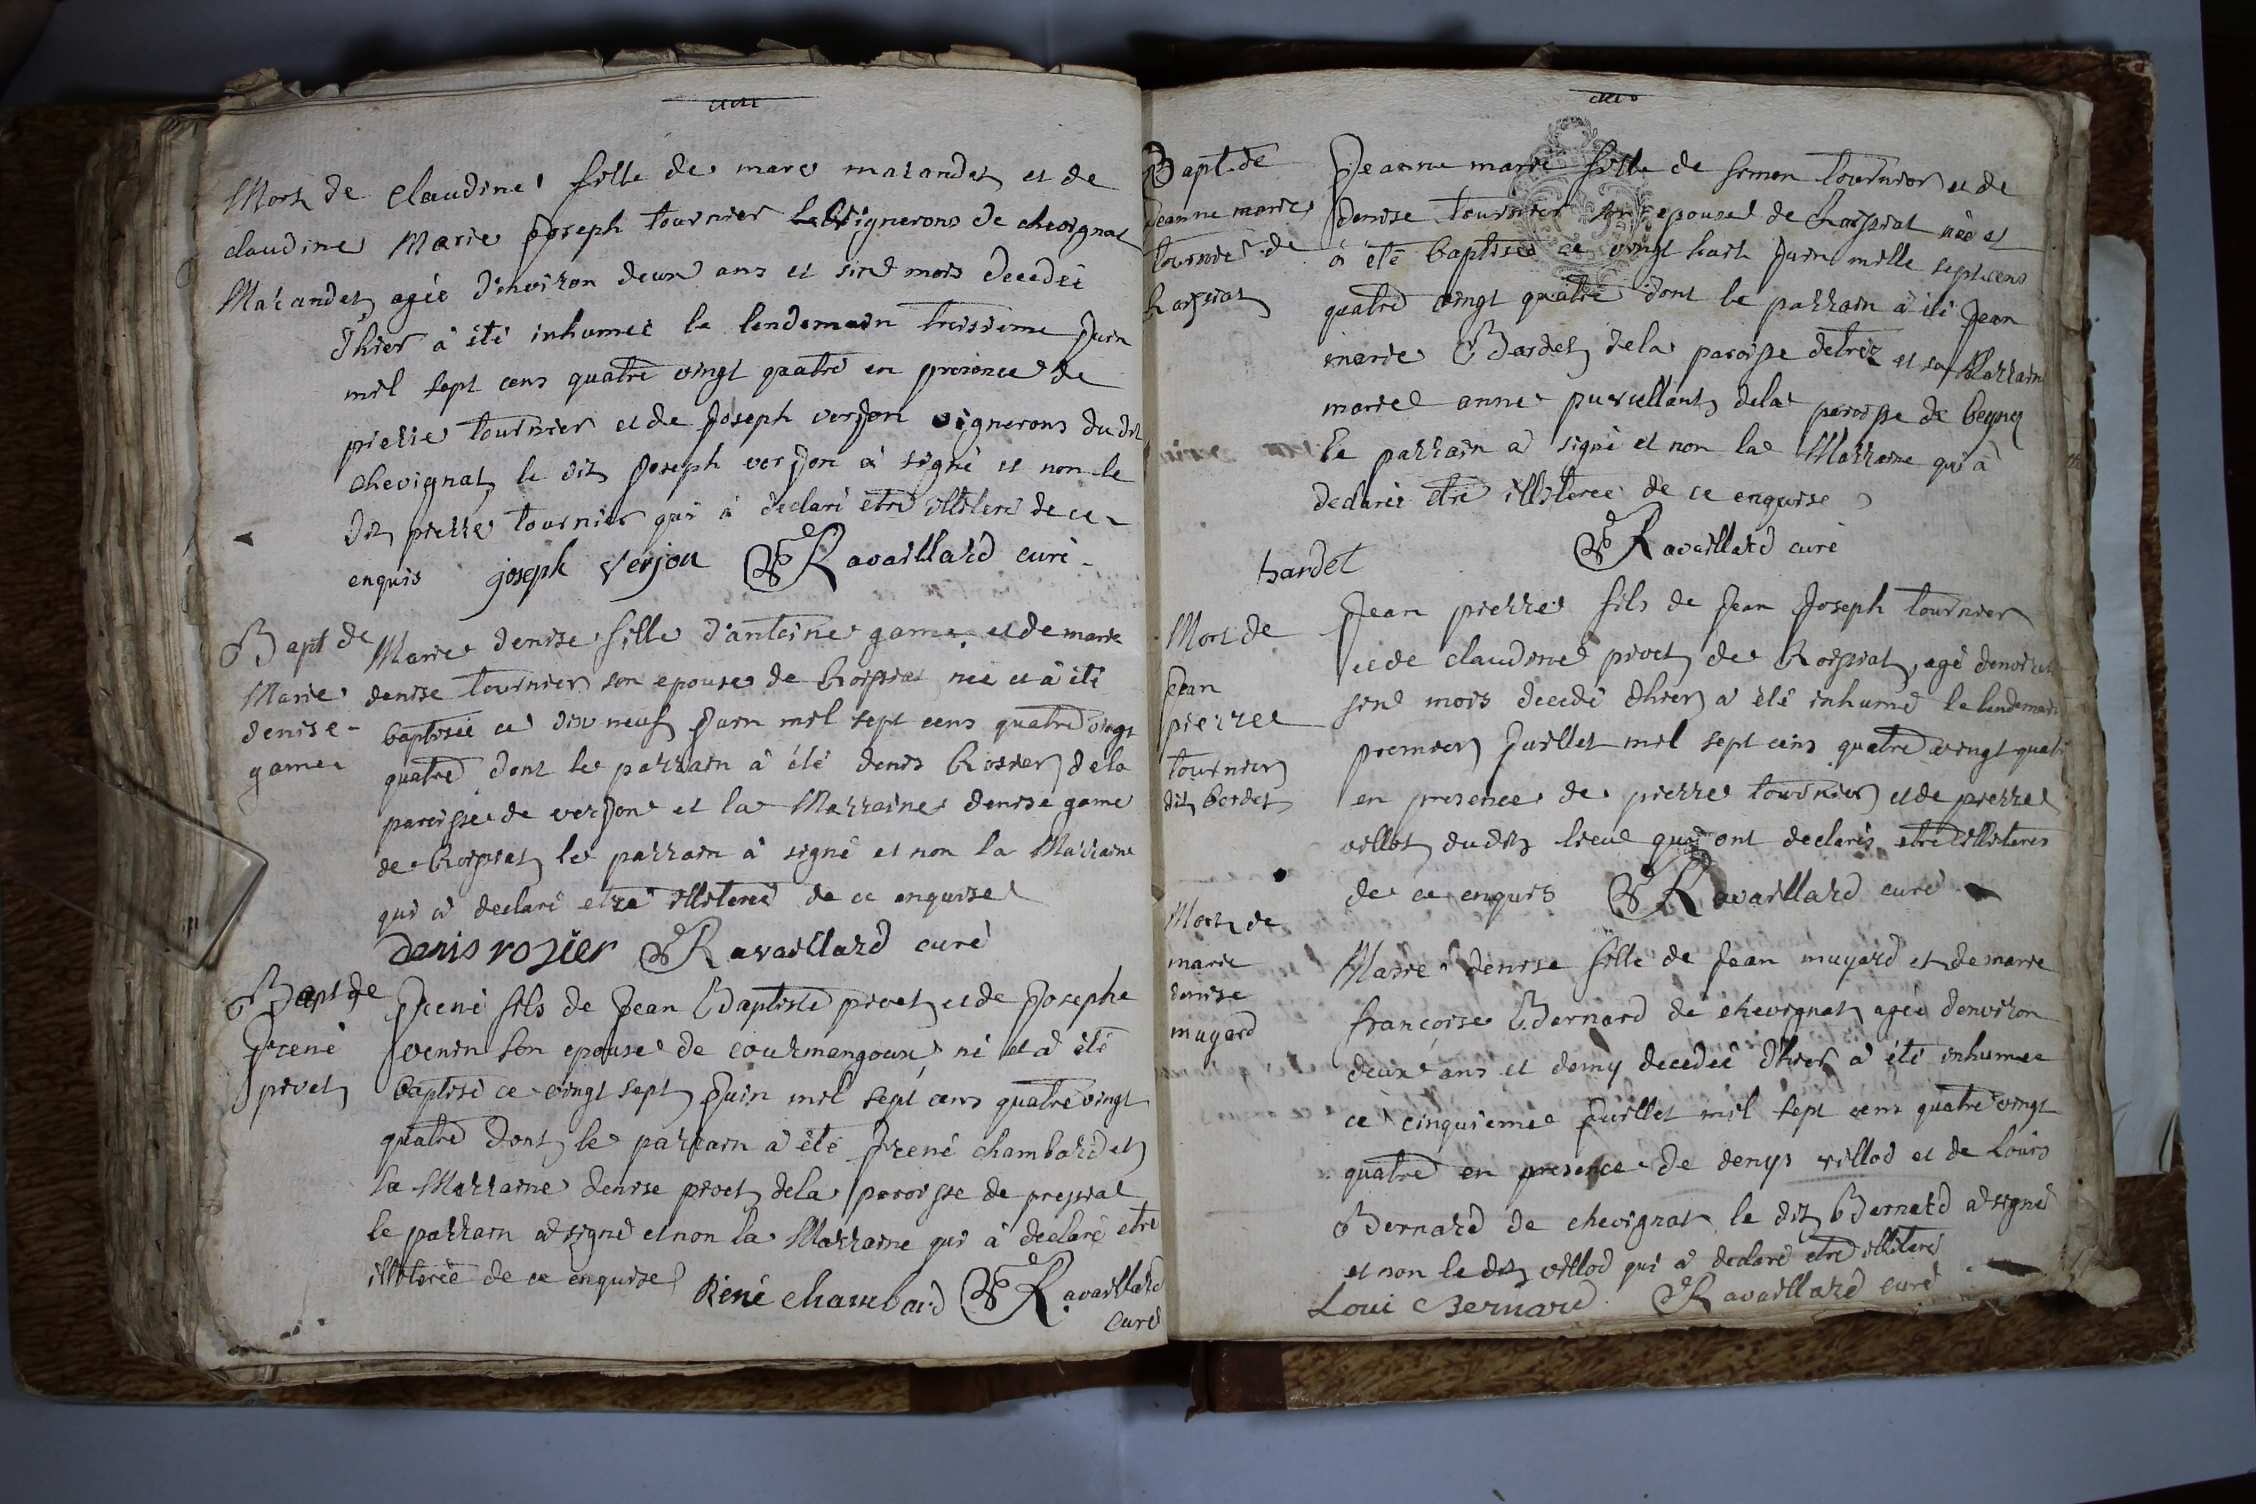 Mort de claudine fille de marc marandet et de
claudine Marie Joseph tournier vignerons de chevignat
Marandet agée d'environ deux ans et six mois decedée
d'hier à été inhumée le lendemain troisieme Juin
mil sept cens quatre vingt quatre en presence de
pierre tournier et de Joseph verjon vignerons dudit
chevignat le dit Joseph verjon à signé et non le
dit pierre tournier qui à declaré etre illiteré de ce
enquis joseph verjon Ravaillard curé
Bapt de
Marie
denise
game
Marie denise fille d'antoine game et de marie
denise tournier son epouse de Roissiat née et à été
baptisée ce dix neuf Juin mil sept cens quatre vingt
quatre dont le parrain à été denis Rosier de la
paroisse de verjon et la Marraine denise game
de Roissiat le parrain à signé et non la Marraine
qui à declaré etre illiteree de ce enquise
denis rozier Ravaillard curé
Bapt de
Jrené
pivet
Jrené fils de Jean Baptiste pivet et de Josephe
venin son epouse de courmangoux né et à été
baptisé ce vingt sept Juin mil sept cens quatre vingt
quatre dont le parrain à été Jrené chambard et
la Marraine denise pivet de la paroisse de pressiat
le parrain à signé et non la Marraine qui à declaré etre
illiterée de ce enquise René chambard Ravaillard
curé
Bapt de
Jeanne marie
tournier de
Roissiat
Jeanne marie fille de simon tournier et de
denise tournier son epouse de Roissiat née et
à été baptisée ce vingt huit Juin mille sept cens
quatre vingt quatre dont le parrain à été Jean
marie Bardet de la paroisse de treiz et sa Marraine
marie anne puvillant de la paroisse de beyny
le parrain a signé et non la Marraine qui à
declarée etre illiteree de ce enquise
bardet Ravaillard curé
Mort de
Jean
pierre
tournier
dit berdet
Jean pierre fils de Jean Joseph tournier
et de claudine pivet de Roissiat, agé denviron
six mois decedé d'hier a été inhumé le lendemain
premier Juillet mil sept cens quatre vingt quatre
en presence de pierre tournier et de pierre
villet dudit lieu qui ont declarés etre illiteres
de ce enquis Ravaillard curé
Mort de
marie
denise
muyard
Marie denise fille de Jean muyard et de marie
françoise Bernard de chevignat agée d'environ
deux ans et demy decedée d'hier à été inhumée
ce cinquieme Juillet mil sept cens quatre vingt
quatre en presence de denys villod et de Louis
Bernard de chevignat le dit Bernard à signé
et non le dit villod qui à declaré etre illiteré
Loui Bernard Ravaillard curé